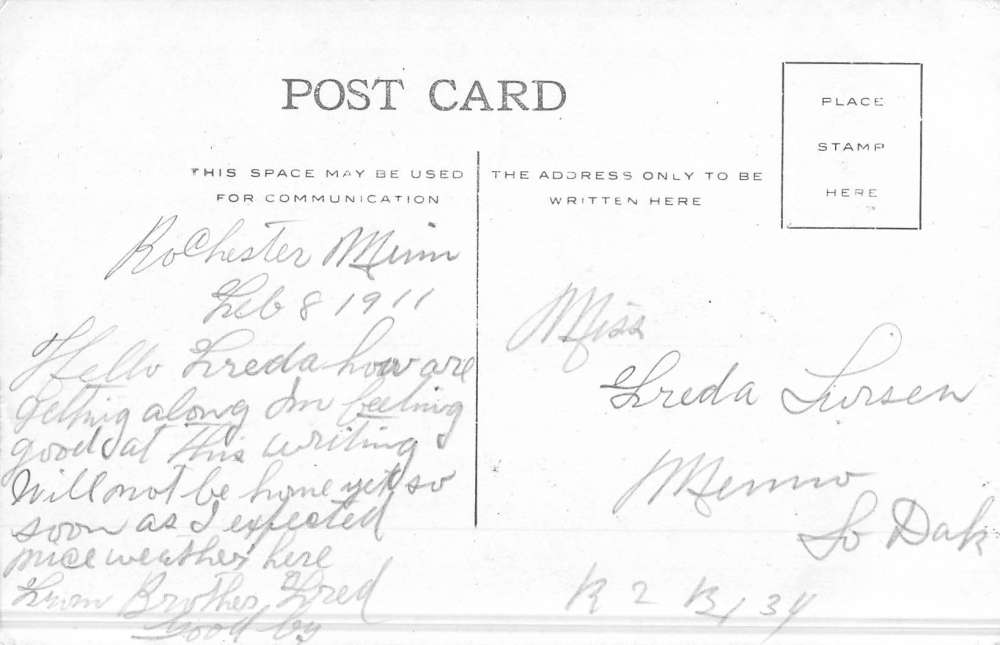 POST CARD
PLACE
STAMP
HERE
THIS SPACE MAY BE USED
FOR COMMUNICATION
THE ADDRESS ONLY TO BE
WRITTEN HERE
Rochester Minn
Feb 8 1911
Hello Freda how are
getting along Im feeling
good at this writing I
Will not be home yet so
soon as I expected
nice weather here
From Brother Fred
Good by
Miss
Freda
Menno
So Dak
R 2 B 134